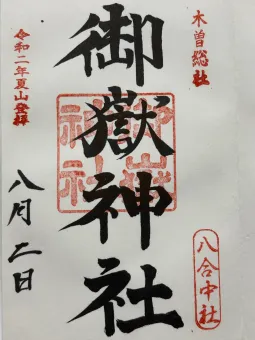 木曽総社
八合中社
御嶽神社
令和二年夏山登拝
八月二日